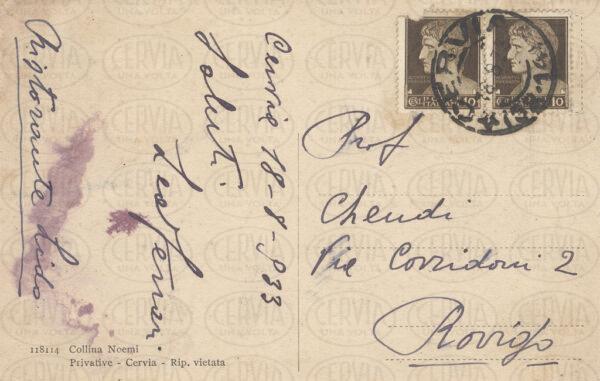 Cervia 18-8-933
Saluti
Lea Ferrari
Ristorante Lido
Prof
Chendi
Via Corridoni 2
Rovigo
118114 Collina Noemi
Privative - Cervia - Rip. vietata
POSTE ITALIANE 10
10
CERVIA
CERVIA
UNA VOLTA